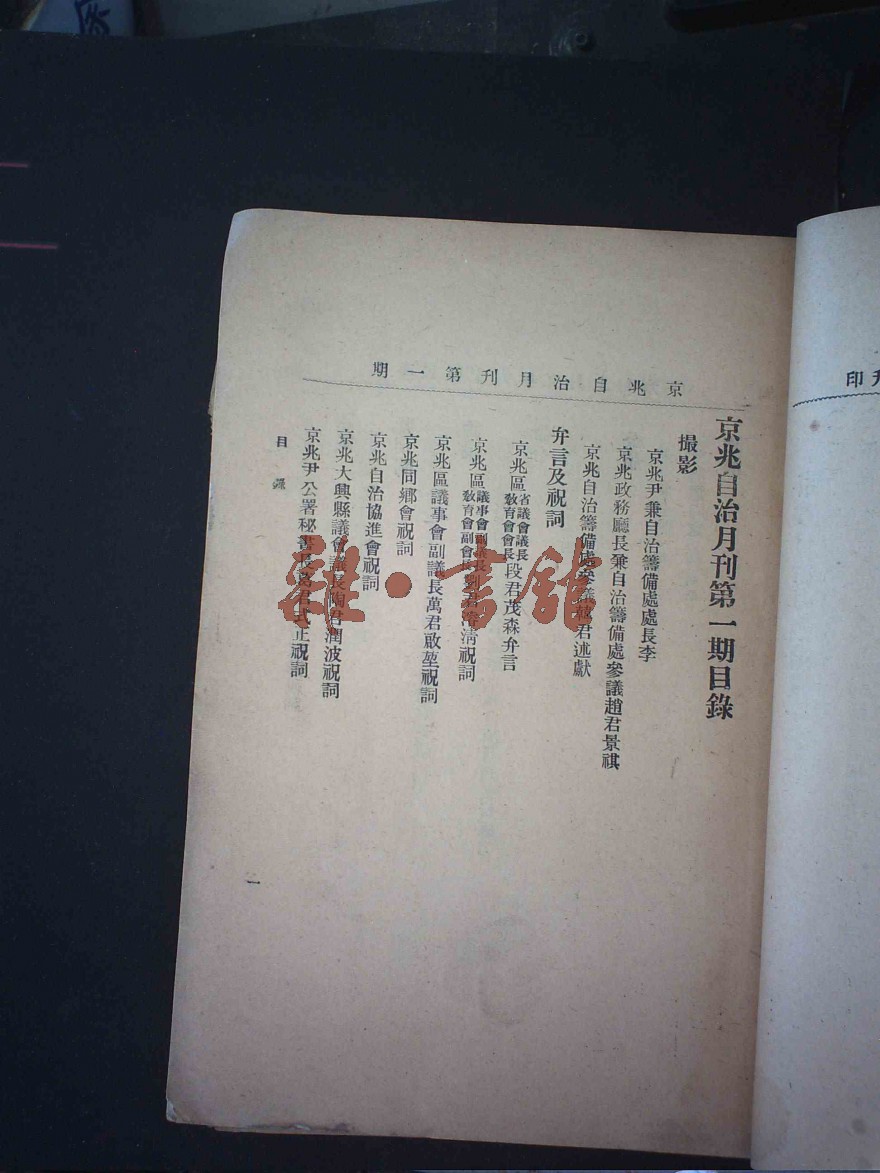 京兆自治月刊第一期
京兆自治月刊第一期目錄
撮影
京兆尹兼自治籌備處處長李
京兆政務廳長兼自治籌備處參議趙君景祺
京兆自治籌備處參議 君述獻
弁言及祝詞
京兆區省議會議長教育會會長段君茂森弁言
京兆區議事會副議長教育會副會長劉君 清祝詞
京兆區議事會副議長萬君敢堃祝詞
京兆同鄉會祝詞
京兆自治協進會祝詞
京兆大興縣議會議長陶君潤波祝詞
京兆尹公署秘書長 君式正祝詞
目錄
一
印
雜·書館